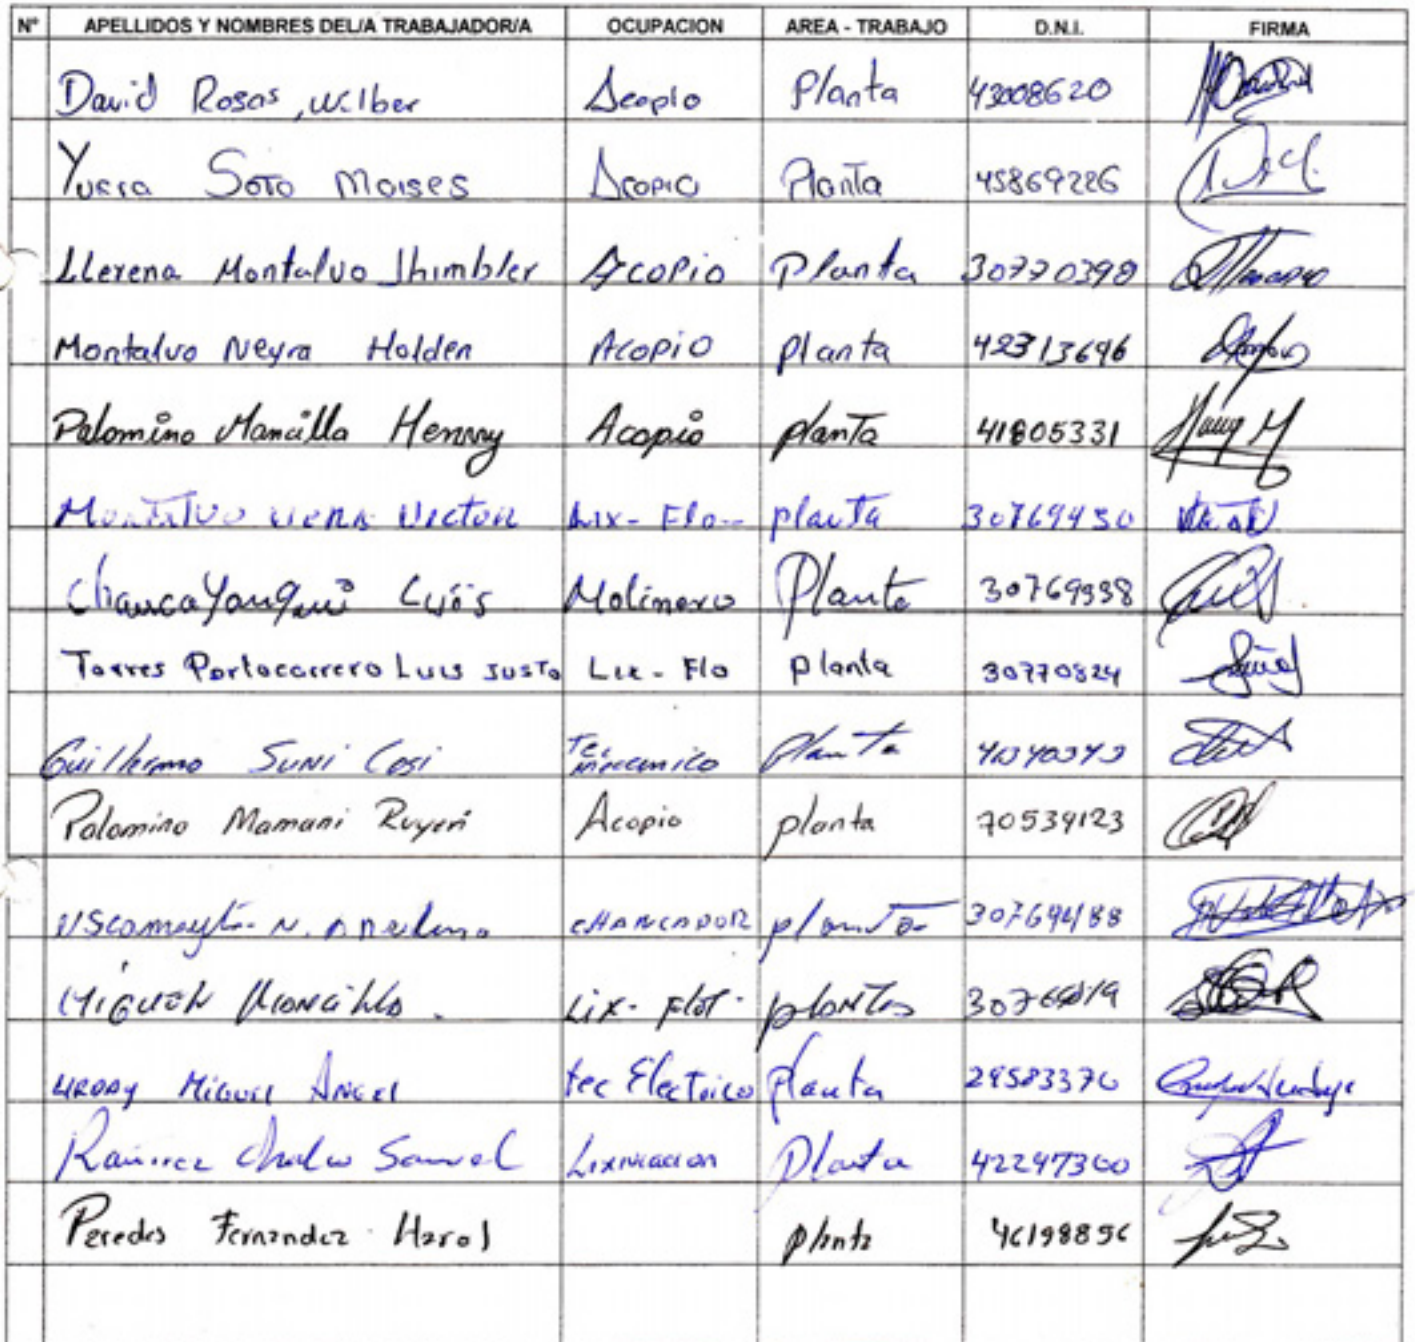 Nº APELLIDOS Y NOMBRES DEL/A TRABAJADOR/A OCUPACION AREA - TRABAJO D.N.I. FIRMA
David Rosas, Wilber Acopio Planta 43008620
Yucra Soto Moises Acopio Planta 45869226
Llerena Montalvo Jhimbler Acopio Planta 30770398
Montalvo Neyra Holden Acopio planta 42313696
Palomino Mancilla Henrry Acopio planta 41805331
Montalvo Victor Lix - Flo- planta 30769450
Chauca Yanqui Luis Molinero Planta 30769938
Torres Portocarrero Luis Justo Lix - Flo planta 30770824
Guillermo Suni Cosi Tec mecanico Planta
Palomino Mamani Ruyeri Acopio planta 70539123
N. CHANCADOR planta 30769488
Miguel Mancilla. Lix - Flot - planta
Urday Miguel Angel tec Electrico planta 29583370
Ramirez Chalco Samuel Lixiviacion Planta 42247300
Peredes Fernandez Harol planta 46198856